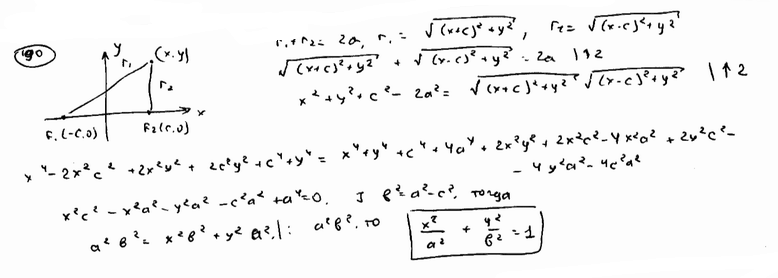 190
y
(x,y)
r₁
r₂
x
F₁(-c,0)
F₂(c,0)
r₁+r₂ = 2a, r₁ = √((x+c)²+y²), r₂ = √((x-c)²+y²)
√((x+c)²+y²) + √((x-c)²+y²) = 2a |↑2
x²+y²+c²-2a² = √((x+c)²+y²) √((x-c)²+y²) |↑2
x⁴-2x²c²+2x²y²+2c²y²+c⁴+y⁴ = x⁴+y⁴+c⁴+4a⁴+2x²y²+2x²c²-4x²a²+2y²c²-
-4y²a²-4c²a²
x²c²-x²a²-y²a²-c²a²+a⁴=0. ] b²=a²-c², тогда
a²b² = x²b²+y²a² |: a²b², то
x²/a² + y²/b² = 1